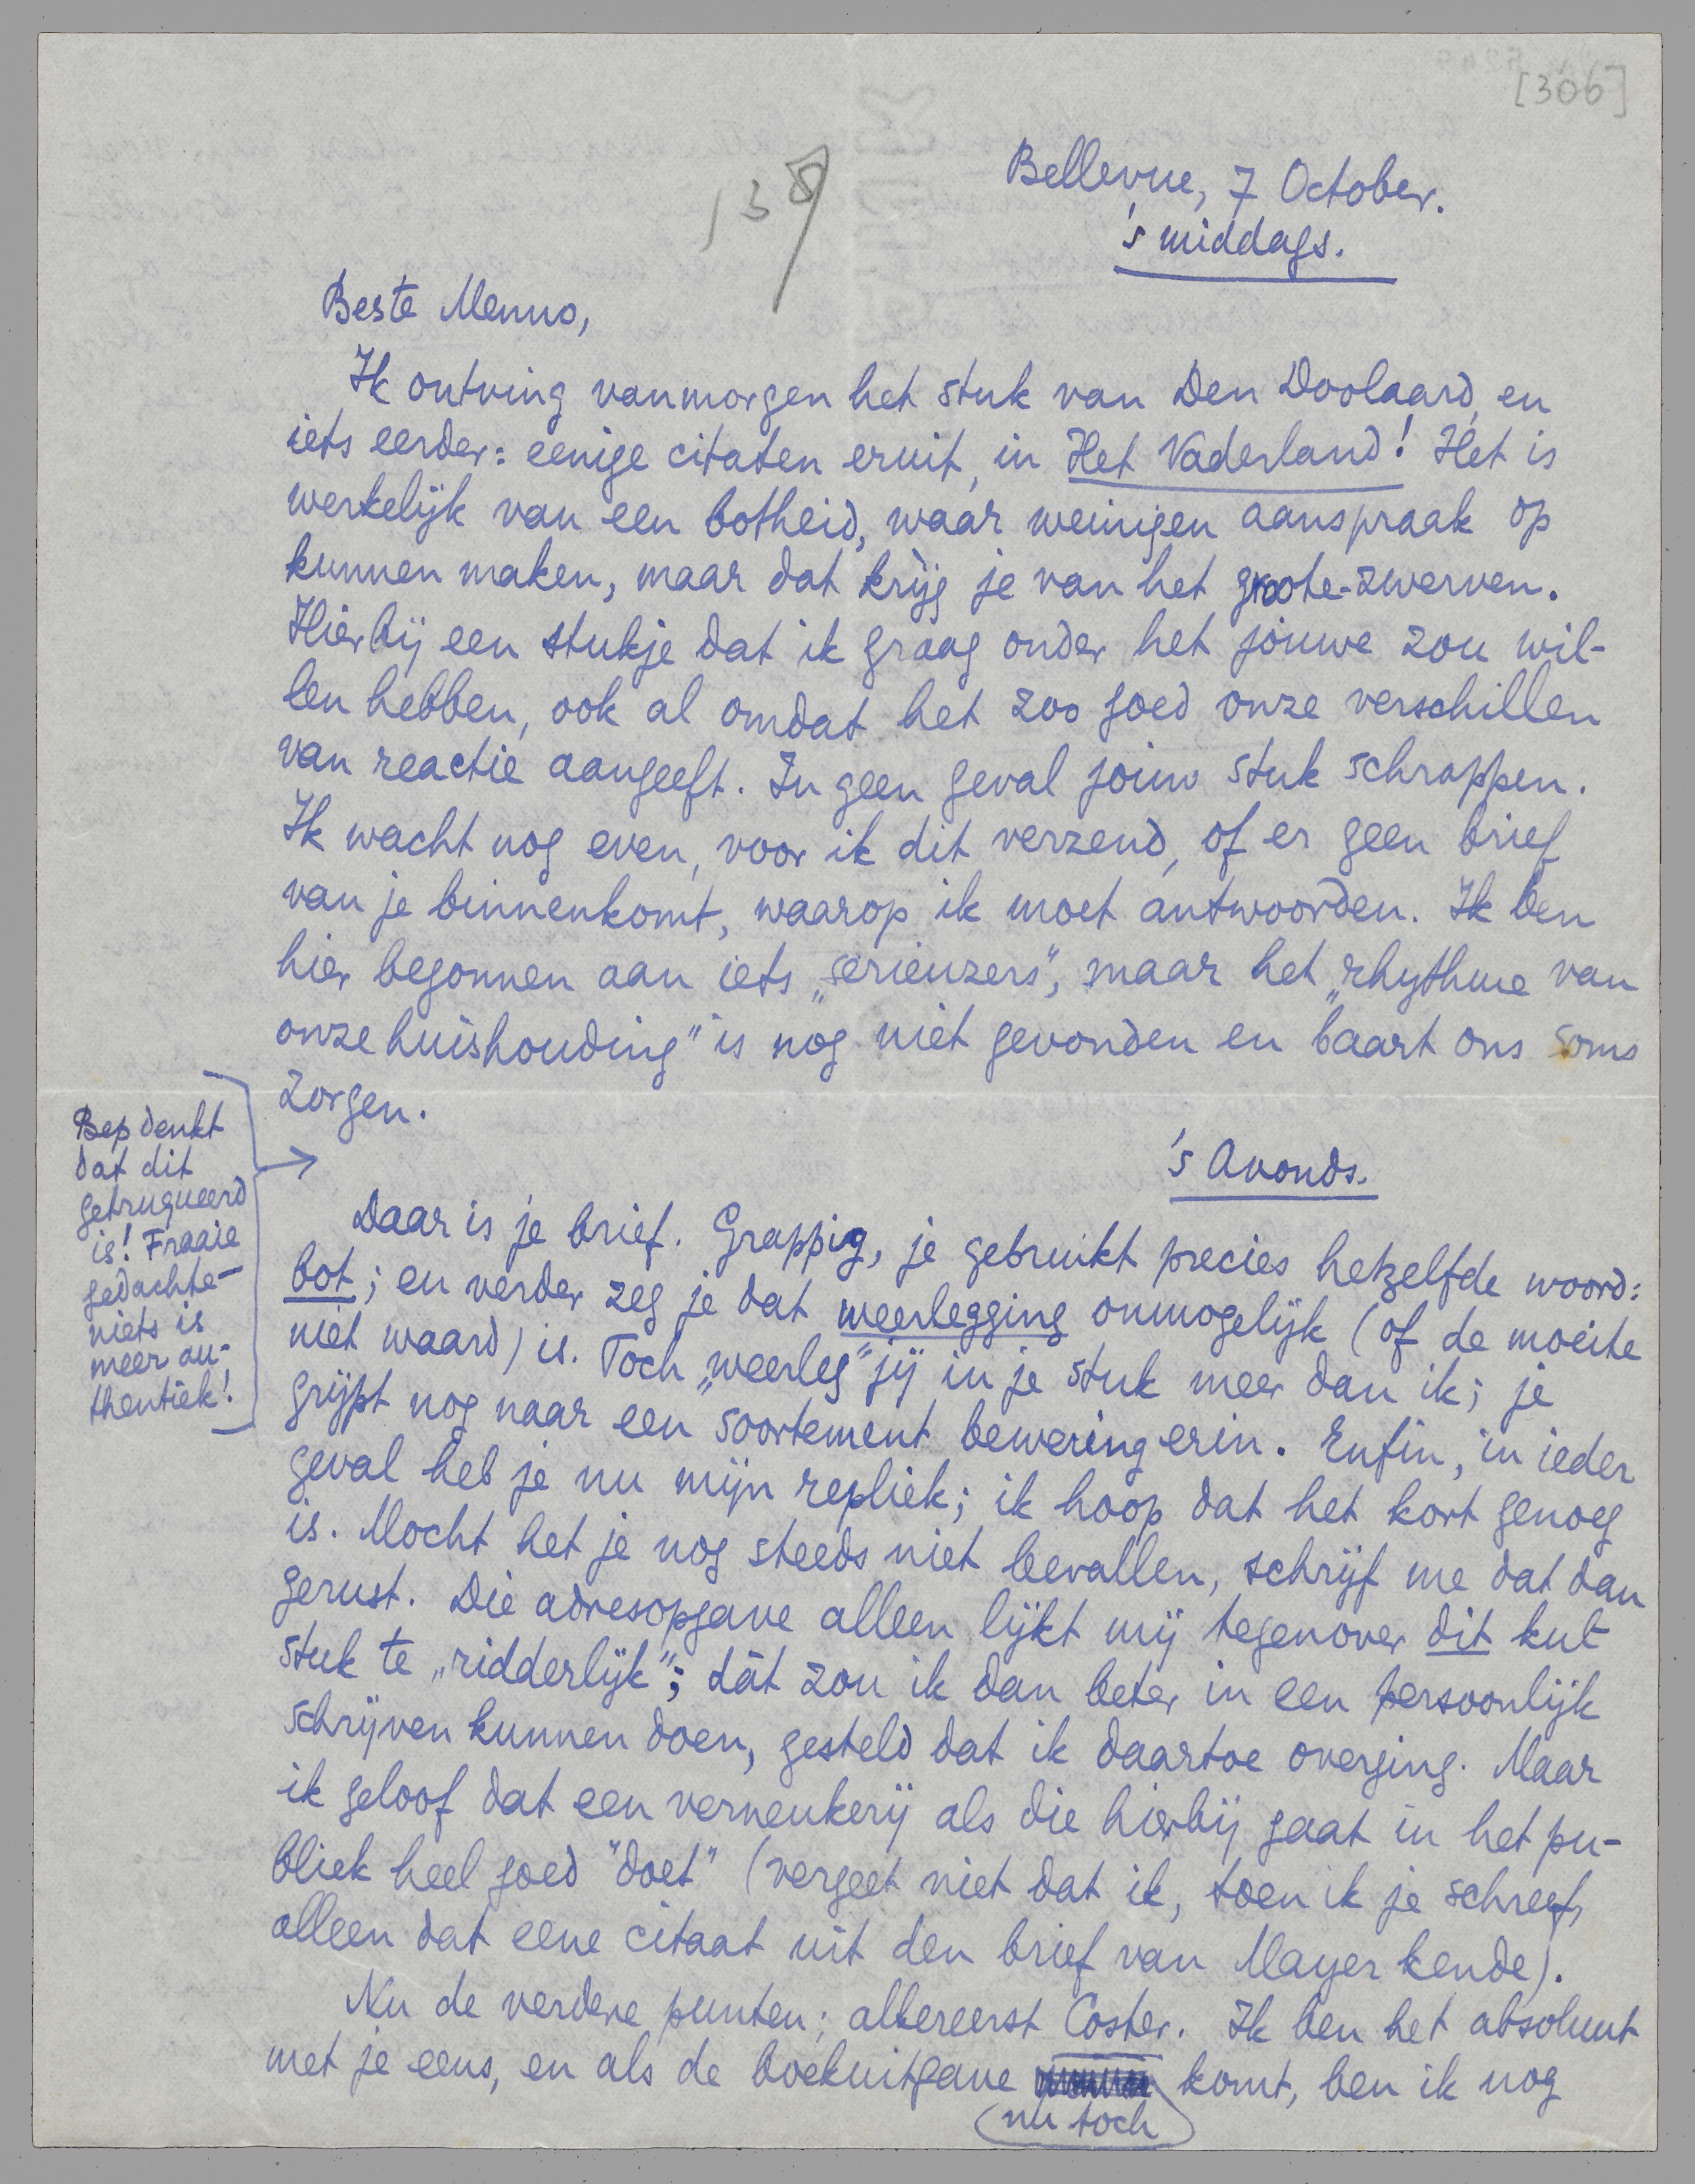 [306]
138
Bellevue, 7 October.
's middags.
Beste Menno,
Ik ontving vanmorgen het stuk van Den Doolaard, en
iets eerder: eenige citaten eruit, in Het Vaderland! Het is
werkelijk van een botheid, waar weinigen aanspraak op
kunnen maken, maar dat krijg je van het groote-zwerven.
Hierbij een stukje dat ik graag onder het jouwe zou wil-
len hebben, ook al omdat het zoo goed onze verschillen
van reactie aangeeft. In geen geval jouw stuk schrappen.
Ik wacht nog even, voor ik dit verzend, of er geen brief
van je binnenkomt, waarop ik moet antwoorden. Ik ben
hier begonnen aan iets „serieuzers", maar het „rhythme van
onze huishouding" is nog niet gevonden en baart ons soms
zorgen.
Bep denkt
dat dit
getruqueerd
is! Fraaie
gedachte—
niets is
meer au-
thentiek!
's Avonds.
Daar is je brief. Grappig, je gebruikt precies hetzelfde woord:
bot; en verder zeg je dat weerlegging onmogelijk (of de moeite
niet waard) is. Toch „weerleg" jij in je stuk meer dan ik; je
grijpt nog naar een soortement bewering erin. Enfin, in ieder
geval heb je nu mijn repliek; ik hoop dat het kort genoeg
is. Mocht het je nog steeds niet bevallen, schrijf me dat dan
gerust. Die adresopgave alleen lijkt mij tegenover dit kut-
stuk te „ridderlijk"; dát zou ik dan beter in een persoonlijk
schrijven kunnen doen, gesteld dat ik daartoe overging. Maar
ik geloof dat een verneukerij als die hierbij gaat in het pu-
bliek heel goed "doet" (vergeet niet dat ik, toen ik je schreef,
alleen dat eene citaat uit den brief van Mayer kende).
Nu de verdere punten; allereerst Coster. Ik ben het absoluut
met je eens, en als de boekuitgave komt, ben ik nog
nu toch